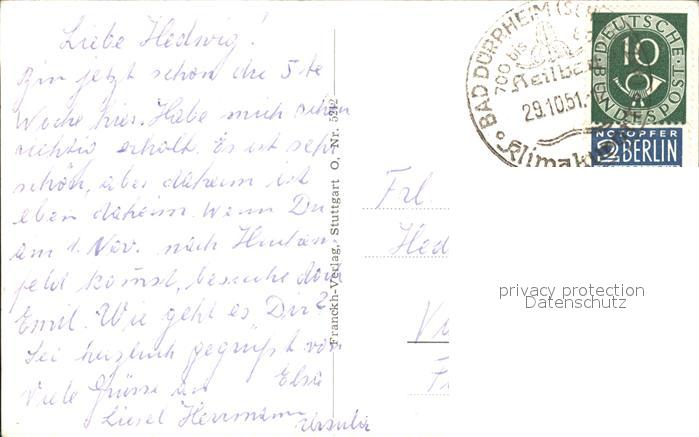 Liebe Hedwig!
Bin jetzt schon die 5te
Woche hier. Habe mich schon
richtig erholt. Es ist sehr
schön, aber daheim ist
eben daheim. Wenn Du
am 1. Nov. nach
feld kommst, besuche doch
Emil. Wie geht es Dir?
Sei herzlich gegrüßt von
Viele Grüsse an Elsa
Liesel Herrmann
Franckh-Verlag, Stuttgart O, Nr. 5212
BAD DÜRRHEIM
700 bis
29.10.51.
DEUTSCHE
10
BUNDESPOST
NOTOPFER
2 BERLIN
Frl.
Hed
privacy protection
Datenschutz